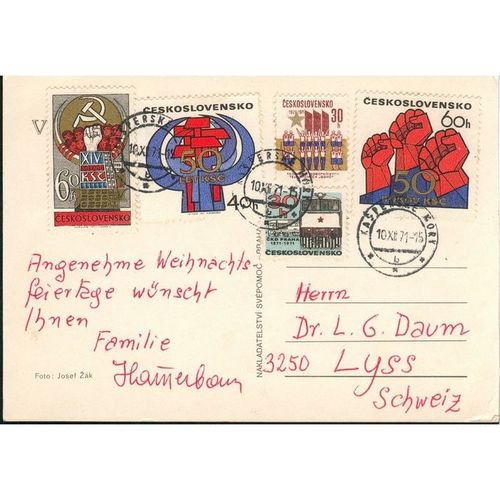 V
XIV
KSČ
60h
ČESKOSLOVENSKO
ČESKOSLOVENSKO
50
LET KSČ
40h
ČESKOSLOVENSKO
30
30h
ČKD PRAHA
1871-1971
ČESKOSLOVENSKO
ČESKOSLOVENSKO
60h
50
KSČ
10.XII.71-15
b
10.XII.71-15
KAŠPERSKÉ HORY
10.XII.71-15
b
Angenehme Weihnachts
feiertage wünscht
Ihnen
Familie
Foto: Josef Žák
NAKLADATELSTVÍ SVÉPOMOC
Herrn
Dr. L. G. Daum
3250 Lyss
Schweiz